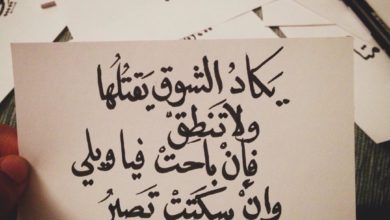 يَكادُ الشوق يَقتُلُها
ولا تَنطِقْ
فإنْ باحتْ فيا ويلي
وإنْ سكَتَتْ تَصيرُ